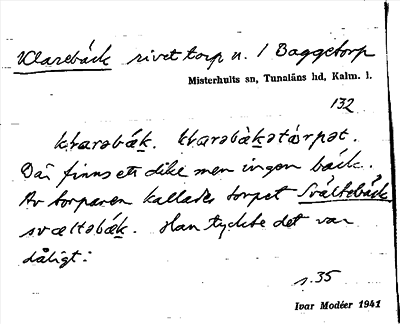 Klarebäck rivet torp u. / Baggetorp
Misterhults sn, Tunaläns hd, Kalm. l.
132
kḷarəbäk. kḷarəbäkətårpət.
Där finns ett dike men ingen bäck.
Av torparen kallades torpet Svältebäck
sväl̥təbäk. Han tyckte det var
dåligt.
s. 35
Ivar Modéer 1941